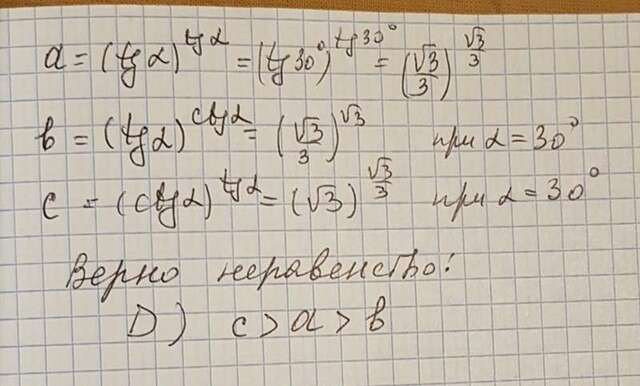 a = (tg α)^tg α = (tg 30°)^tg 30° = (√3/3)^√3/3
b = (tg α)^ctg α = (√3/3)^√3 при α = 30°
c = (ctg α)^tg α = (√3)^√3/3 при α = 30°
Верно неравенство:
D) c > a > b